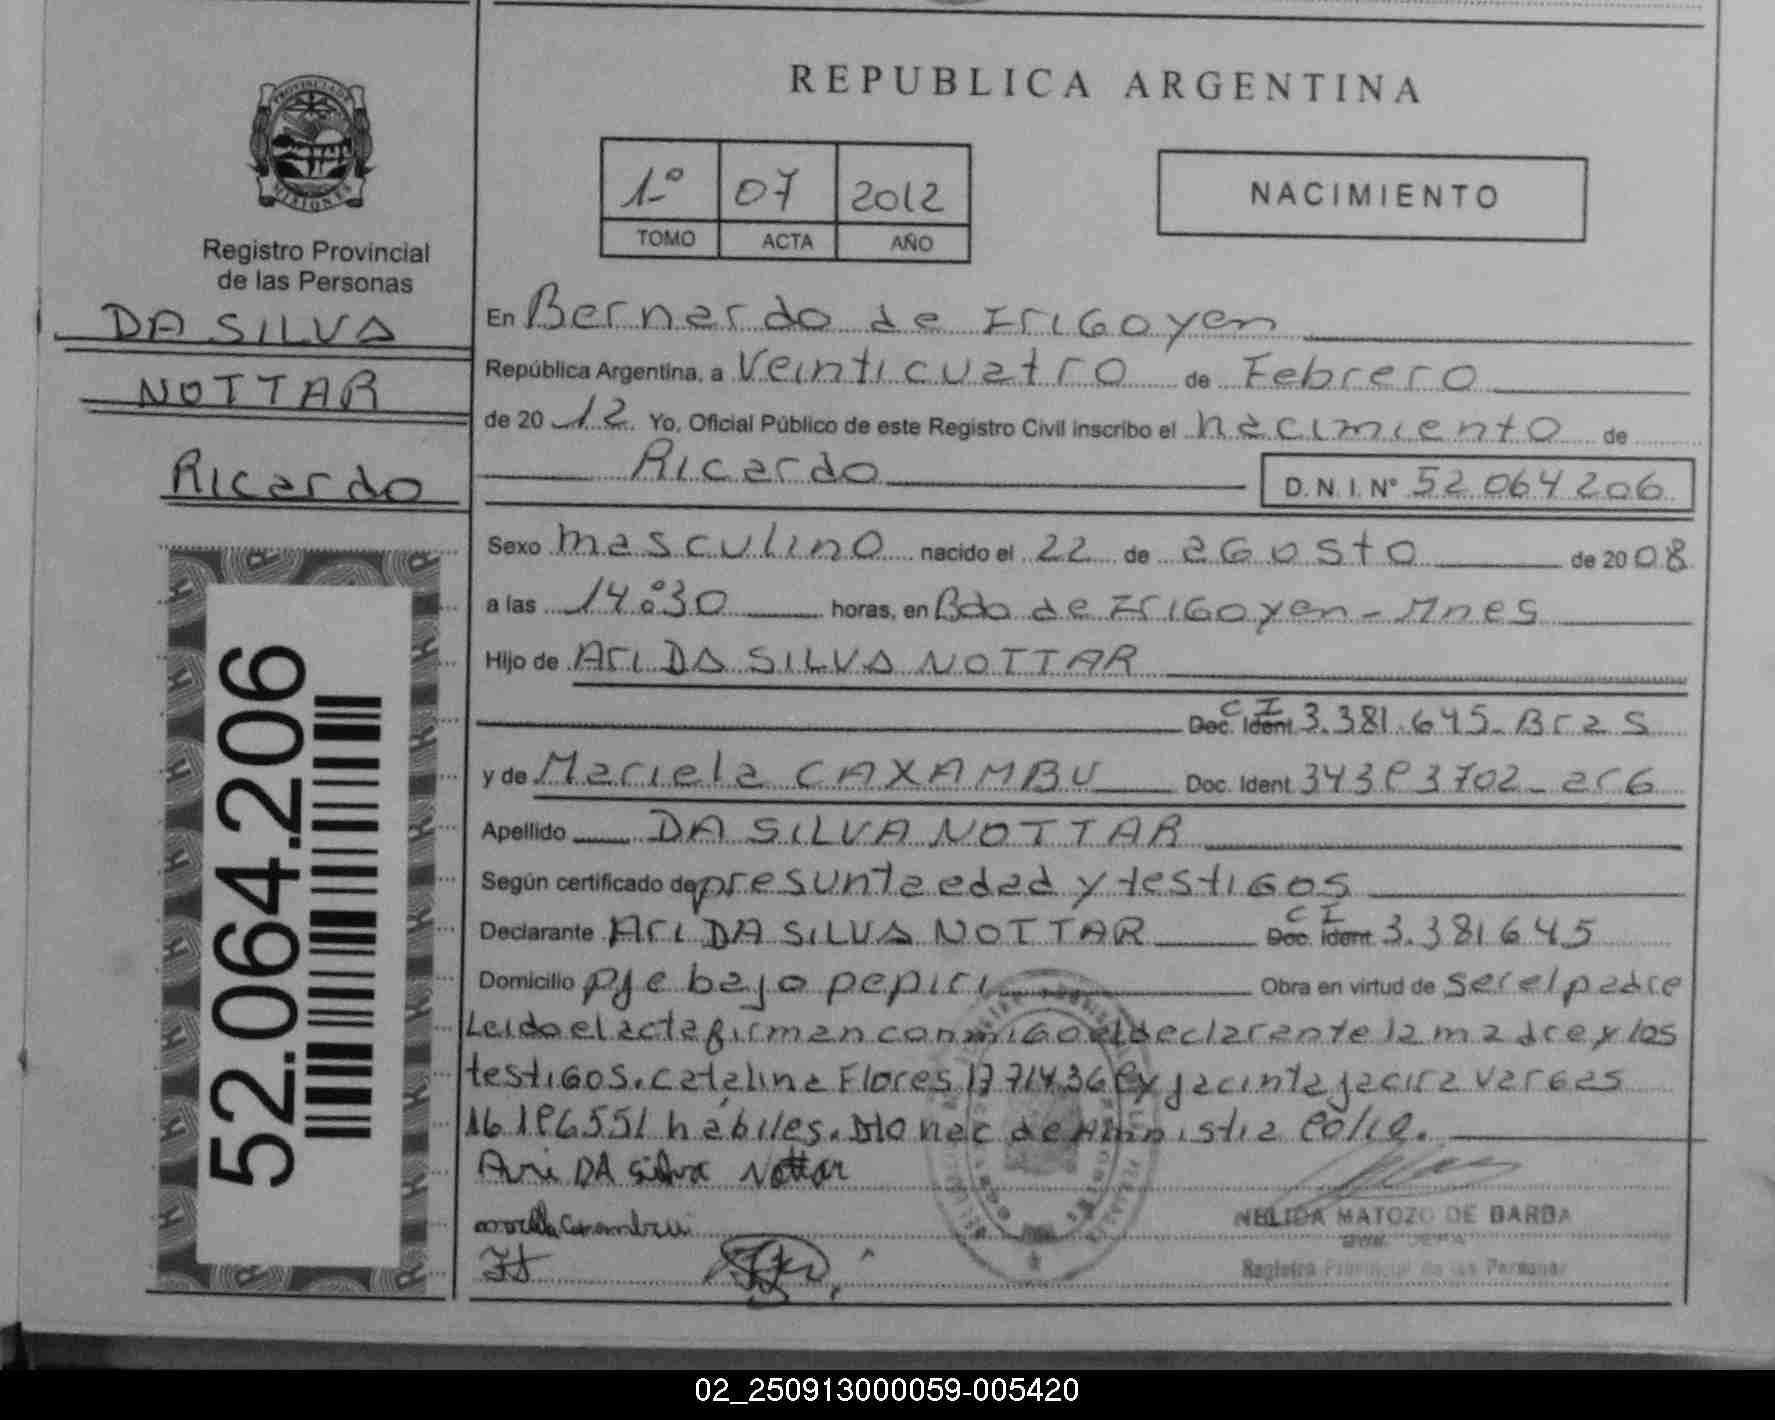 REPUBLICA ARGENTINA
PROVINCIA DE MISIONES
Registro Provincial
de las Personas
DA SILVA
NOTTAR
Ricardo
52.064.206
1º 07 2012
TOMO ACTA AÑO
NACIMIENTO
En Bernardo de Irigoyen
República Argentina, a Veinticuatro de Febrero
de 20 12 Yo, Oficial Público de este Registro Civil inscribo el nacimiento de
Ricardo D.N.I. Nº 52 064 206
Sexo masculino nacido el 22 de agosto de 20 08
a las 14:30 horas, en Bdo de Irigoyen - Mnes
Hijo de Ari DA SILVA NOTTAR
C I Doc. Ident 3.381.645 - Bras
y de Mariela CAXAMBU Doc. Ident 34383702 - arg
Apellido DA SILVA NOTTAR
Según certificado de presunta edad y testigos
Declarante Ari DA SILVA NOTTAR C I Doc. Ident 3.381645
Domicilio pje bajo pepiri Obra en virtud de ser el padre
Leido el acta firman conmigo el declarante la madre y los
testigos. Catalina Flores y jacinta jacira vargas
hábiles. Dto nac de
Ari DA Silva Nottar
NELIDA MATOZO DE BARBA
Registro Provincial de las Personas
02_250913000059-005420